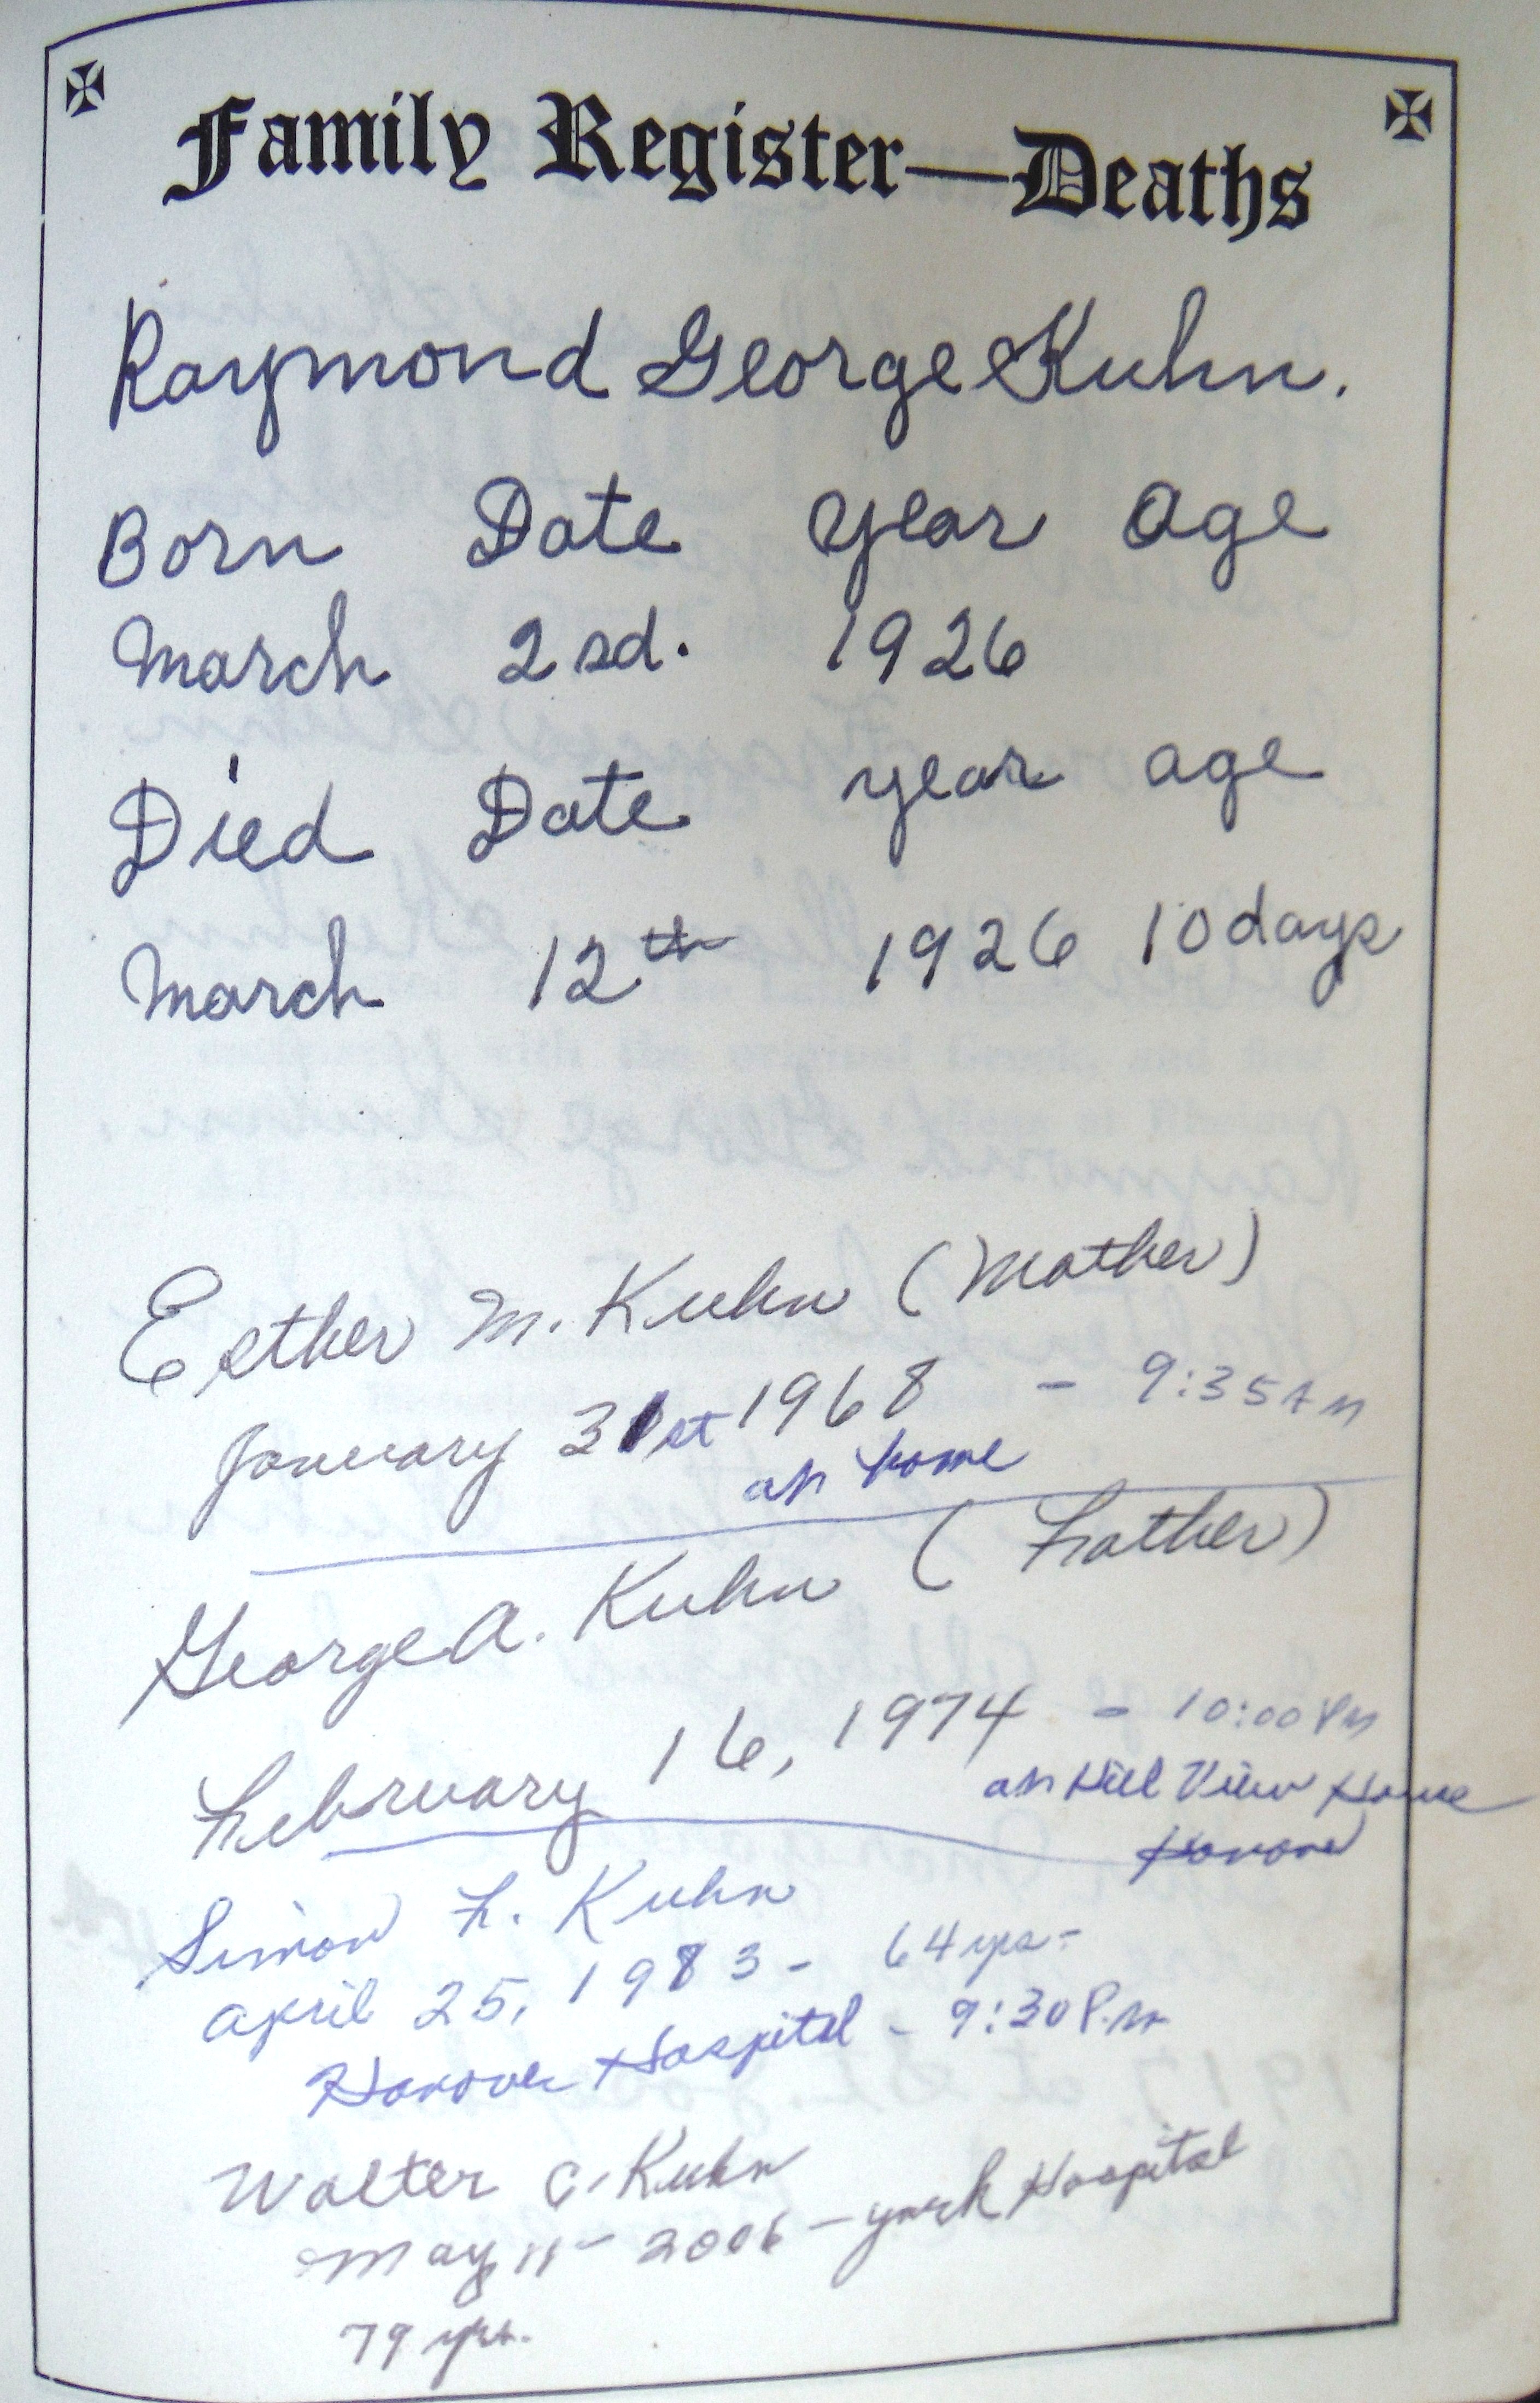 Family Register—Deaths
Raymond George Kuhn.
Born Date Year Age
March 2sd. 1926
Died Date year age
March 12th 1926 10 days
Esther M. Kuhn (Mother)
January 31st 1968 - 9:35 AM
at home
George A. Kuhn (Father)
February 16, 1974 - 10:00 PM
at Hill View Home
Hanover
Simon F. Kuhn
April 25, 1983 - 64 yrs -
Hanover Hospital - 9:30 P.M
Walter C. Kuhn
May 11 - 2006 - York Hospital
79 yrs.